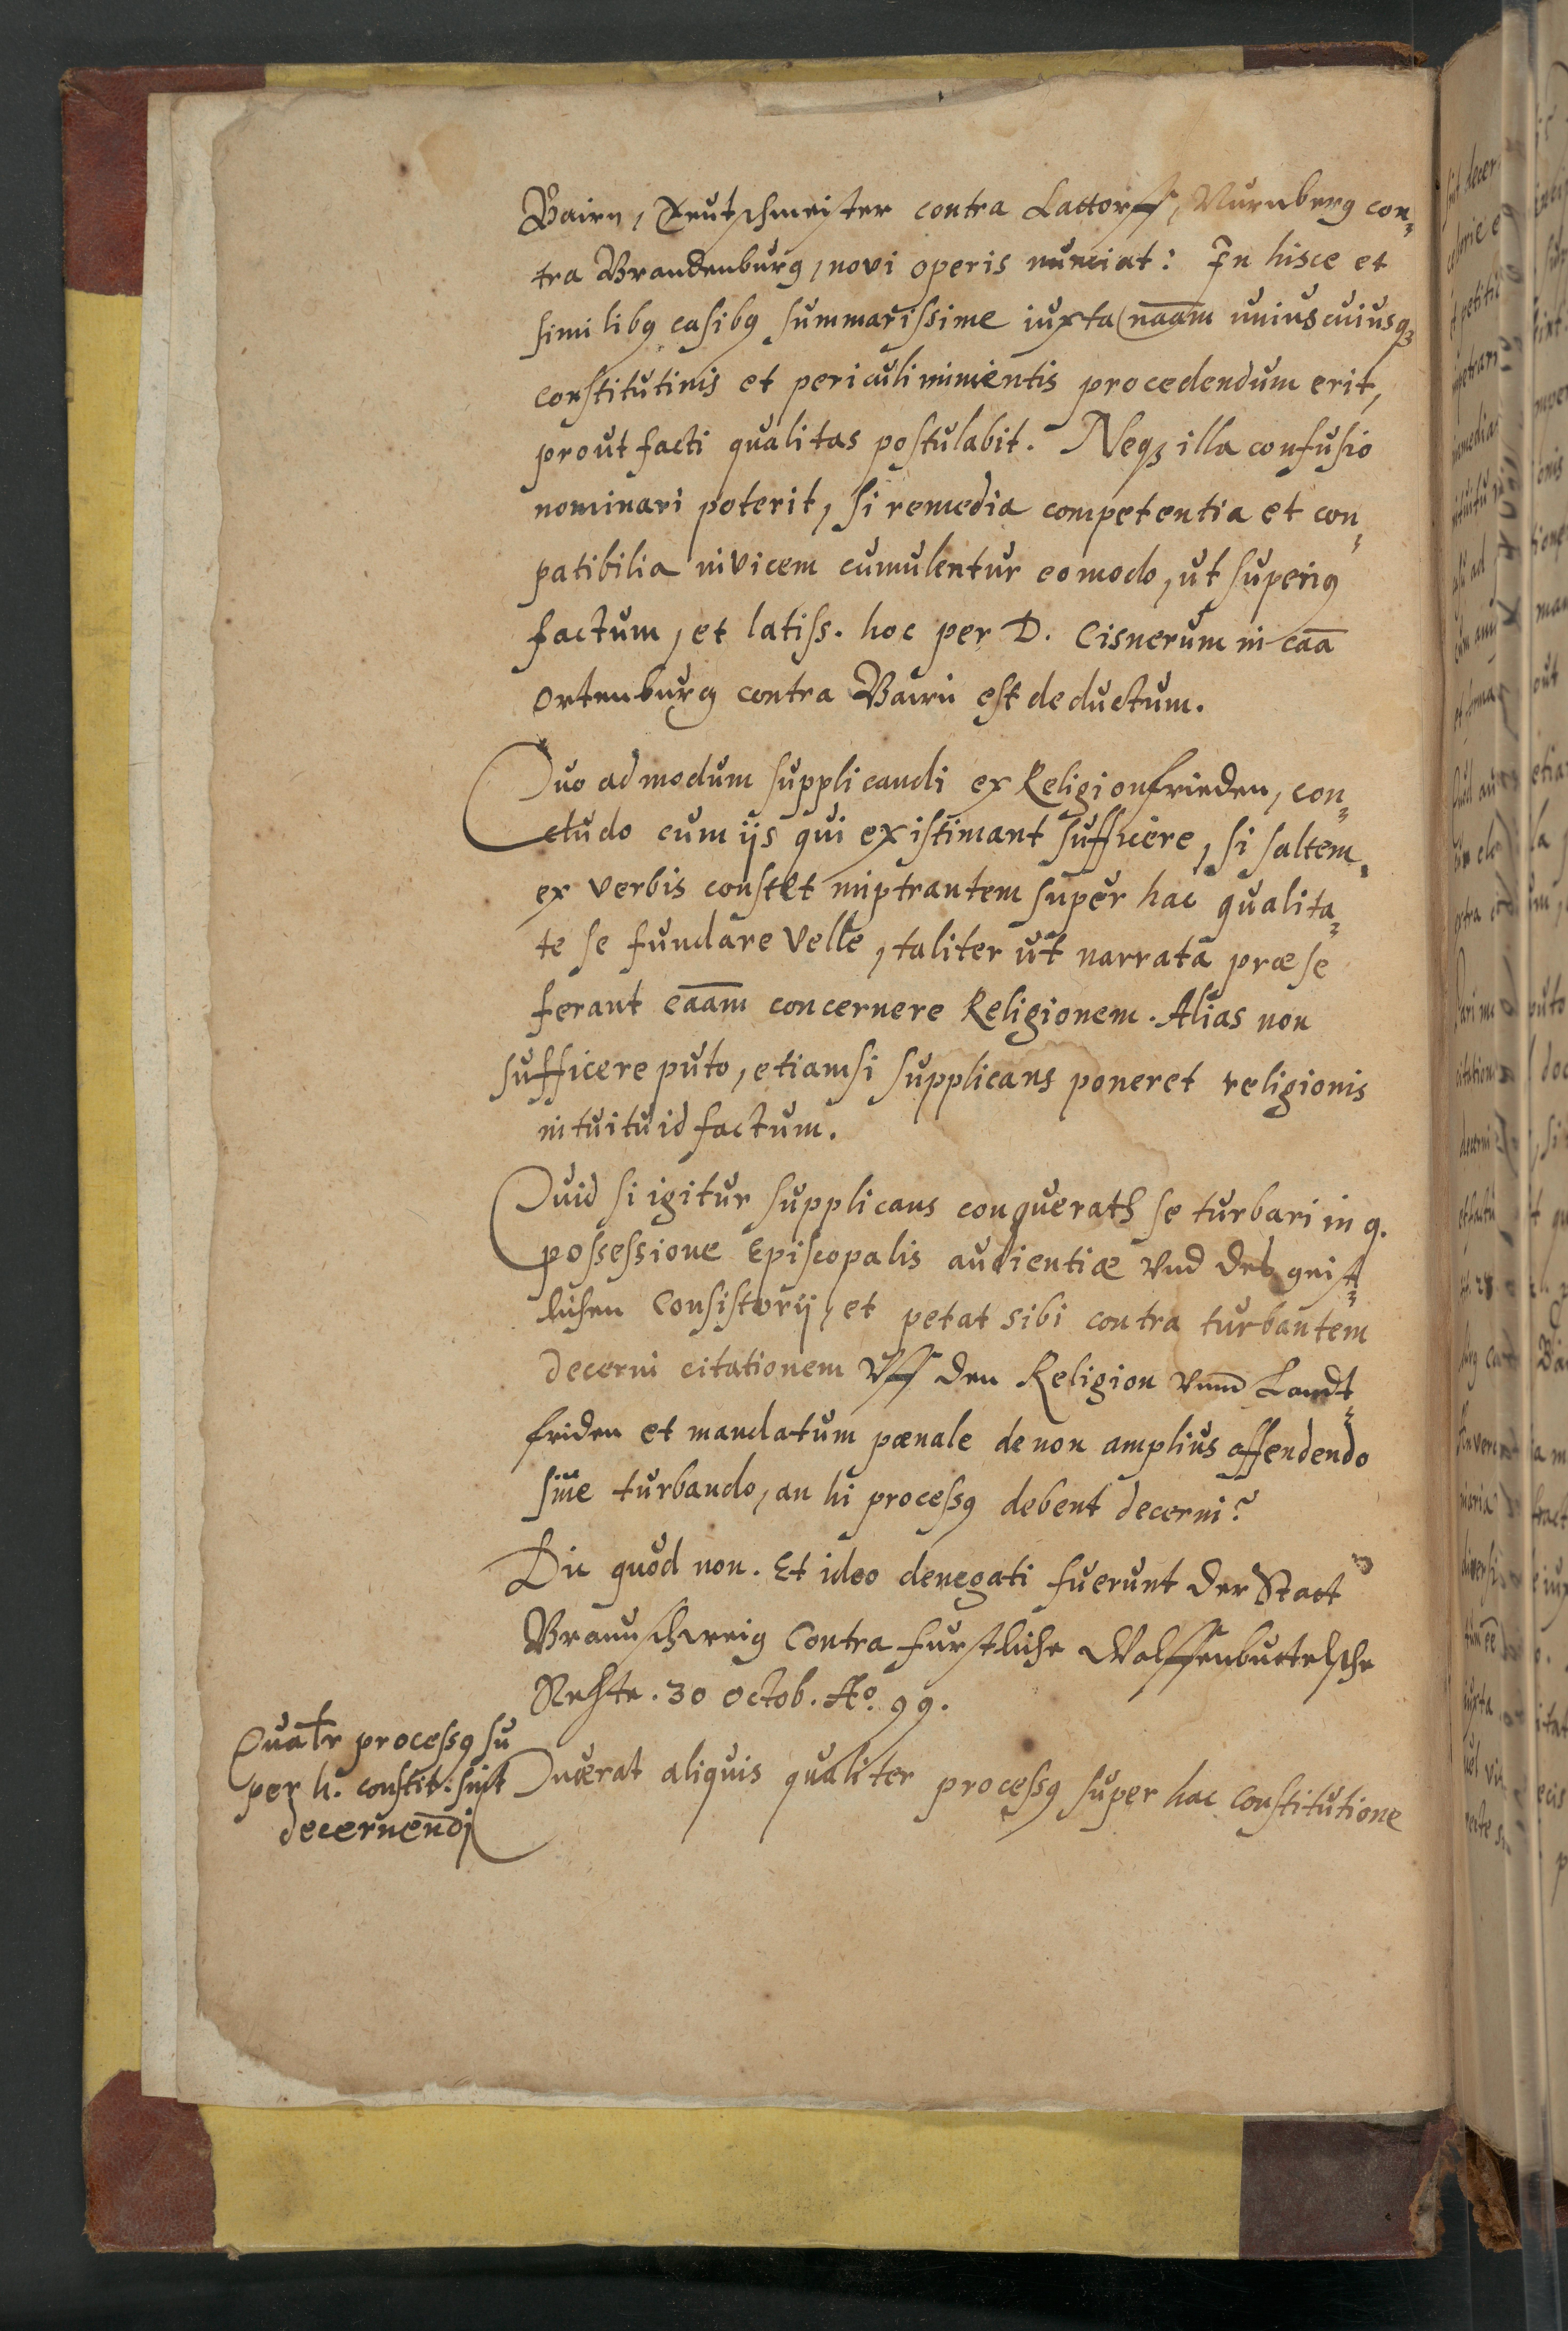 Bairn, Teutschmeister contra Lattorff, Nurnberg con¬
tra Brandenburg, novi operis nunciat: In hisce et
similibꝰ casibꝰ summarissime iuxta naa̅m uniuscuiusqꝫ
constitutinis et periculi iminentis procedendum erit,
prout facti qualitas postulabit. Neqꝫ illa confusio
nominari poterit, si remedia competentia et con¬
patibilia invicem cumulentur eo modo, ut superiꝰ
factum, et latiss. hoc per D. Cisnerum in caa̅
Ortenburg contra Bairn est deductum.
Quo ad modum supplicandi ex Religionfrieden, con¬
cludo cum ijs qui existimant sufficere, si saltem
ex verbis constet imptrantem super hac qualita¬
te se fundare velle, taliter ut narrata præ se
ferant caa̅m concernere Religionem. Alias non
sufficere puto, etiamsi supplicans poneret religionis
intuitu id factum.
Quid si igitur supplicans conquerath se turbari in q.
possessione Episcopalis audientiæ vnd des geist¬
lichen Consistorij, et petat sibi contra turbantem
decerni citationem Vff den Religion vnnd Landt¬
friden et mandatum pœnale de non amplius offendendo
sive turbando, an hi processꝰ debent decerni?
Dic quòd non. Et ideo denegati fuerunt der Statt
Braunschweig Contra furstliche Wolffenbuttelsche
Rehte. 30 Octob. Aº. 99.
Qualr processꝰ su
per h. constit: sint
decernendi
Quærat aliquis qualiter processꝰ super hac constitutione